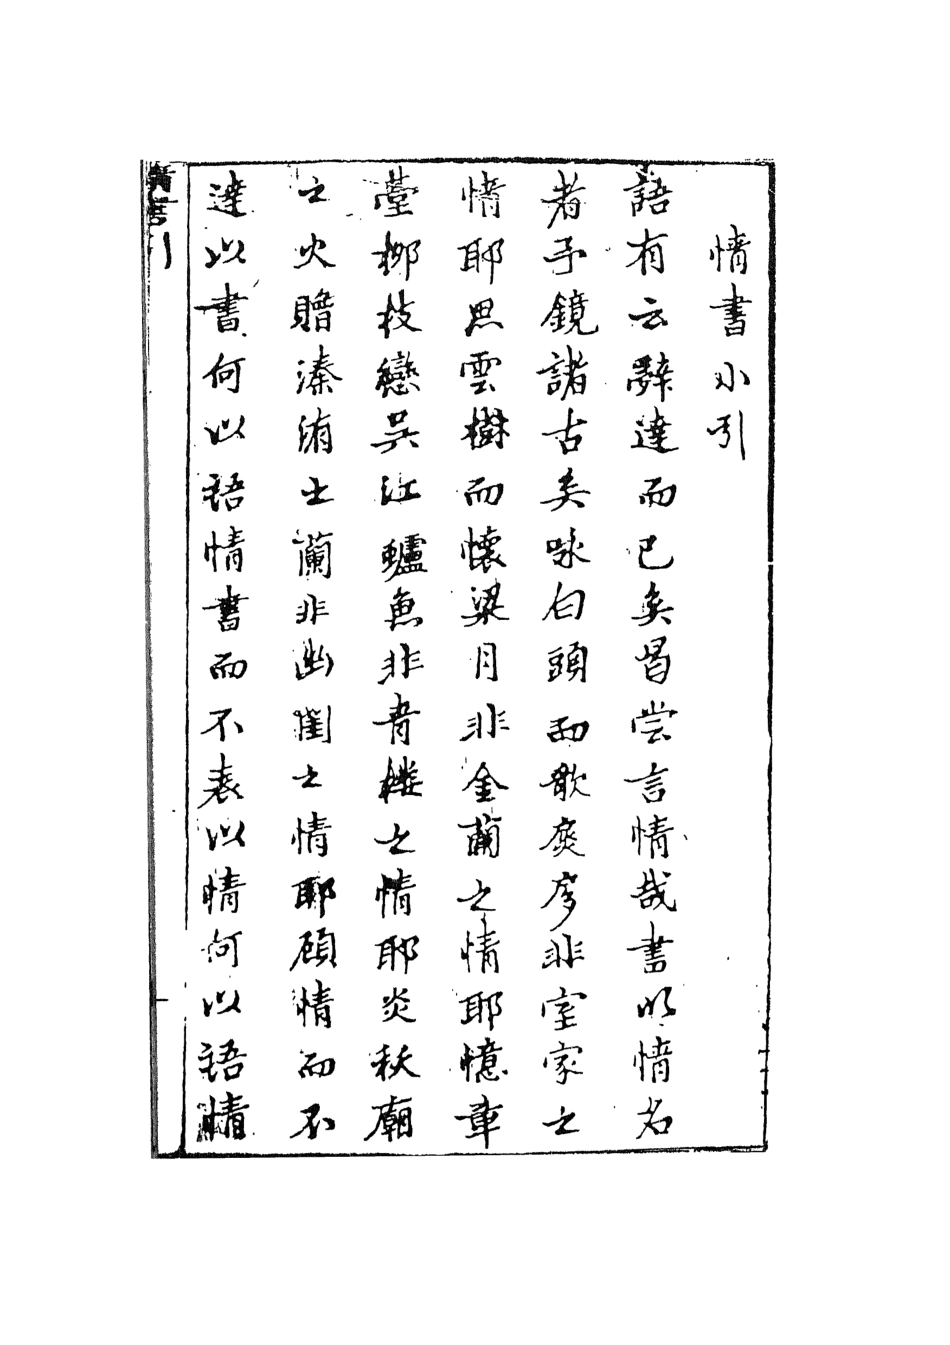 情書小引
語有云辭達而已矣曷嘗言情哉書以情名
者予鏡諸古矣咏白頭而歌扊扅非室家之
情耶思雲樹而懷梁月非金蘭之情耶憶章
臺柳枝戀吳江鱸魚非青樓之情耶炎祆廟
之火贈溱洧之蘭非幽閨之情耶顧情而不
達以書何以語情書而不表以情何以語情
情書引